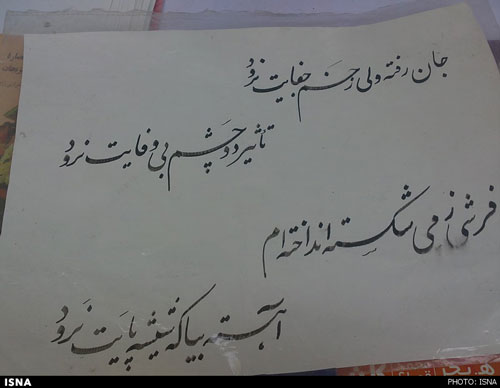 جان رفته ولی زخم جفایت نرود
تاثیر دو چشم بی وفایت نرود
فرشی ز می شکسته انداخته ام
آهسته بیا که شیشه پایت نرود
ISNA
PHOTO: ISNA